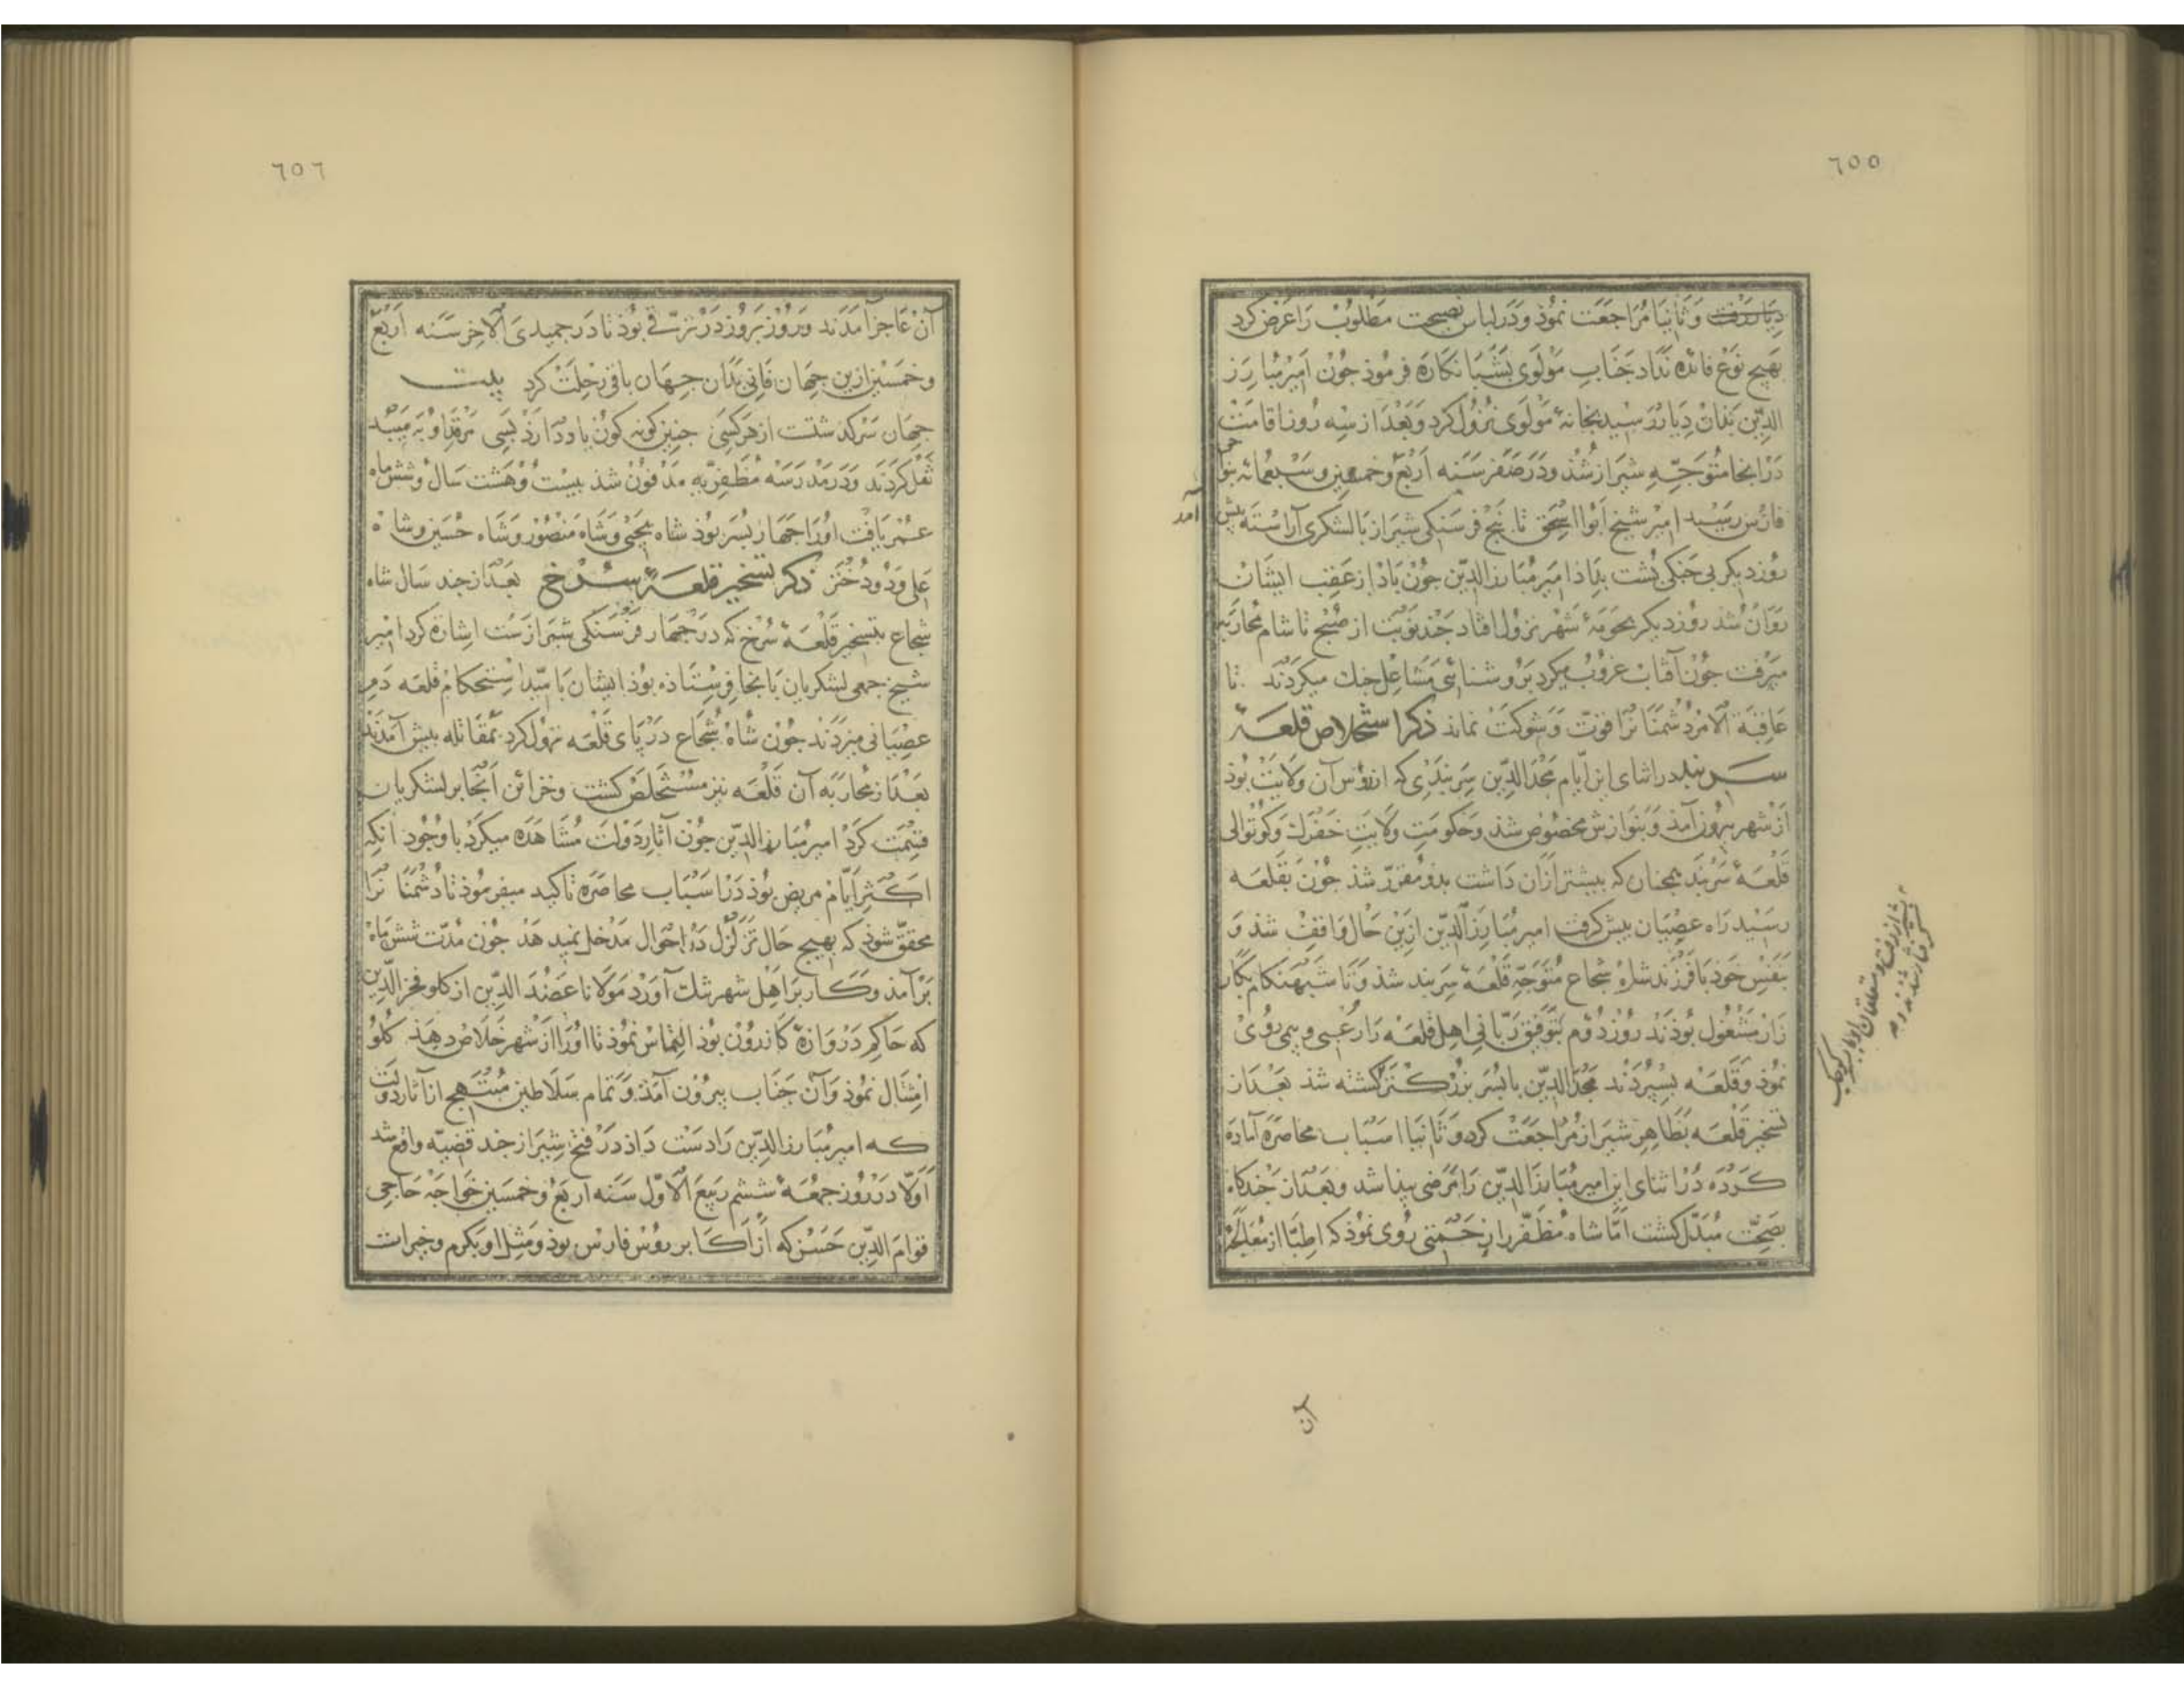 ٦٥٥
دیار رفت وَثانیا مُرَاجَعَت نمُوذ وَدَرلباس نصیحت مَطلوُب رَا عَرض کرد
بهیچ نوَع فائده نَدَاد جَنَابِ مَوْلَوی بشَبَانکاره فرموذ جوُن اَمیر مُبارز
الدّین بَدَان دِیَار رَسیْد بخانهٔ مَوْلَوی نُزوُل کرد وَبَعْدَ از سه رُوز اقامَتْ
دَر انجا متوَجّهِ شیراز شُذ ودَر صَفَر سَنَه اَرْبَعَ وخمسین وسَبْعمائه بنوَاحی
فارْس رَسیْد امیر شیخ اَبوُ اسْحٰق تا پنج فرسَنکی شیرَاز بَالشکری آراسْته پیش
آمد
روُز دیکر بی جَنکی پُشت بدَاذ امیر مُبَارزالدّین جوُن بَاذ از عَقِبِ ایشان
رَوَانْ شُذ روُز دیکر بحَومَهٔ شهْر نزوُل افتاد جَند نَوْبَت از صُبْح تا شام مُحَارَبَه
میرَفت جوُن آفتاب غروُبْ میکرد برُوشنائی مَشَاعِل جنك میکردَند تا
عَاقِبَة الاَمْر دُشمَنَانرا قوّت وَشوکتْ نماند ذکر استخلاص قلعهٔ
سربند در اثنای این اَیّام مَجْدَالدّین سَربَندی که از رؤُس آن وَلایَتْ بُوذ
اَز شهر بیروُن آمذ وَبنوَازش مخصوُص شذ وَحکومَتِ وَلایَتِ خَفرَك وَکوُتوَالی
قلْعَهٔ سَربَند همجنان که بیشتر اَزَان دَاشت بذو مُقرّر شذ جوُن بقَلعَه
رسَیْد رَاه عصْیان پیش کرفت امیر مُبَارزَالدّین ازین حَال وَاقِف شذ وَ
بنفسِ خوَذ بَا فرْزَند شاهْ شجاع مُتوَجّهِ قلْعَهٔ سَربند شذ وَتا شَبهَنکام بکار
زَار مَشغُول بُوذند رُوز دُوّم بتَوفیق رَبّانی اهل قلعَه رَا رُعْبی وبیمی روُیْ
نمُوذ وقَلعَه بسپردَند مَجْدَالدّین با پُسر بزُرکتَر کشته شذ بَعْدَ از
تسخیر قلعَه بظَاهِر شیرَاز مُرَاجَعَتْ کرد وَثَانیا اسْبَاب مُحاصَره آمَادَه
کرَدَه دَر اثنای این امیر مُبَارزَالدّین رَا مَرَضی پیدا شد وبَعْدَ از جَندکاه
بصحّت مُبَدّل کشت امّا شاه مُظَفّر را زحْمتی رُوی نمُوذ که اطبّا از مُعَالجَهٔ
آن
٦٥٦
آنْ عَاجز آمَدَند وَروُز بروُز دَر ترَقّی بُوذ تا دَر جمیدی الاخر سَنه اَرْبَعَ
وخمسین ازین جهَان فانی بدَان جهَان باقی رحْلَتْ کرد بیت
جهَان سَرکذشتست از هَرکسَی جنین کونه کون یاد دَارَذ بَسی مَرقد او به مَیبُد
نَقل کرَدند وَدَر مَدرَسَه مُظَفریّه مَدفوُن شذ بیسْت وُهَشت سَال وشش مَاه
عُمْر یَافت اوُرَا جهَار پُسر بوُذ شاه یحیٰی وَشَاه مَنصوُر وَشَاه حُسَین وشاه
عَلی وَدوُ دُختر ذکر تسخیر قلعهٔ سرخ بَعدَ از جند سَال شاه
شجاع بتسخیر قَلْعَهٔ سُرْخ که دَر جهَار فرْسَنکی شیرَازسْت اشارَه کرد امیر
شیخ جمعی لشکریان بَانجا فرسْتاذه بُوذ ایشان بَا مّید اسْتحکام قلعَه دَمِ
عصْیَانی میزَدَند جوُن شَاهْ شُجَاع دَر پَای قَلْعَه نزوُل کرد بمُقَاتله پیش آمدَند
بَعْدَ از مُحارَبَه آن قَلْعَه نیز مُسْتَخلَصْ کشت وخزائن اَنجَا بر لشکریان
قسْمَت کرَدْ امیر مُبَارزالدّین جوُن آثار دَوْلَت مُشاهَده میکرَدْ با وُجُود انکه
اکثر اَیّام مریض بُوذ دَر اسْبَاب محاصَره تاکید میفرموُذ تا دُشْمَنَانرا
محقّق شوذ که بهیچ حَال تزَلْزُل دَر احْوَال مَدخل نمیدهَد جوُن مُدّت شش مَاه
برآمذ وَکار برَ اَهْل شهر تنك آورْد مَوْلانا عَضُدالدّین از کلو فخرالدّین
که حَاکِم دَرْوَازهٔ کازروُن بوُذ التماس نمُوذ تا اوُرَا از شهر خَلاَص دهَذ کُلوُ
امتثال نمُوذ وَآن جَنَاب بیروُن آمَذ وَتمام سَلَاطین مُبْتَهج از آثار دَولت
که امیر مُبَارزالدّین رَا دَسْت دَاذ دَر فتح شیرَاز جند قضیّه واقع شد
اَوّلاً دَر روُز جمعَهٔ ششم رَبیعَ الاَوّل سَنه اَرْبَعَ وَخمْسَین خوَاجَه حَاجی
قوَامَ الدّین حَسَن که اَز اَکابر روُس فارس بوذ ومثل او بکرم وخیرات